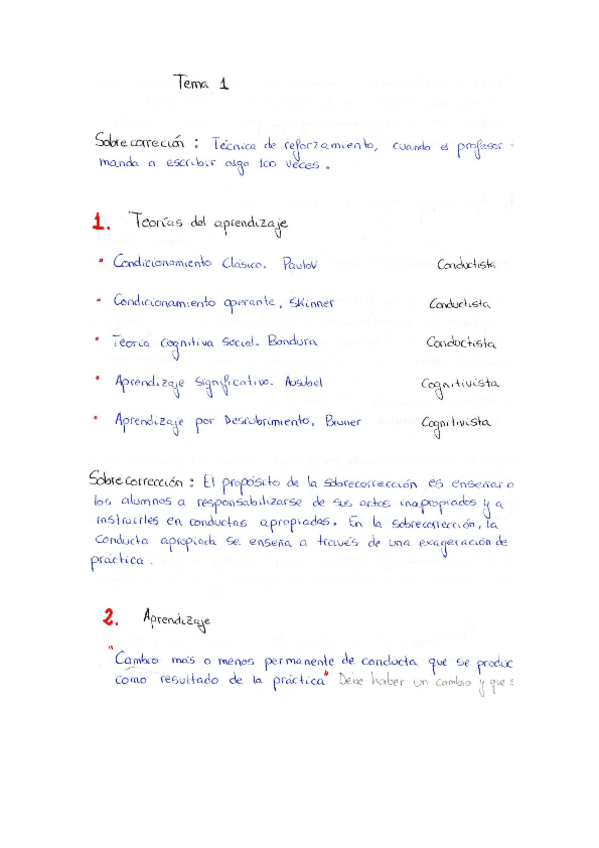 Tema 1
Sobrecorreción : Técnica de reforzamiento, cuando el profesor
manda a escribir algo 100 veces.
1. Teorías del aprendizaje
• Condicionamiento Clásico. Paulov Conductista
• Condicionamiento operante, Skinner Conductista
• Teoría cognitiva social. Bandura Conductista
• Aprendizaje significativo. Ausubel Cognitivista
• Aprendizaje por Descubrimiento, Bruner Cognitivista
Sobrecorrección : El propósito de la sobrecorrección es enseñar a
los alumnos a responsabilizarse de sus actos inapropiados y a
instruirles en conductas apropiadas. En la sobrecorrección, la
conducta apropiada se enseña a través de una exageración de
práctica.
2. Aprendizaje
"Cambio más o menos permanente de conducta que se produc
como resultado de la práctica" Debe haber un cambio y que